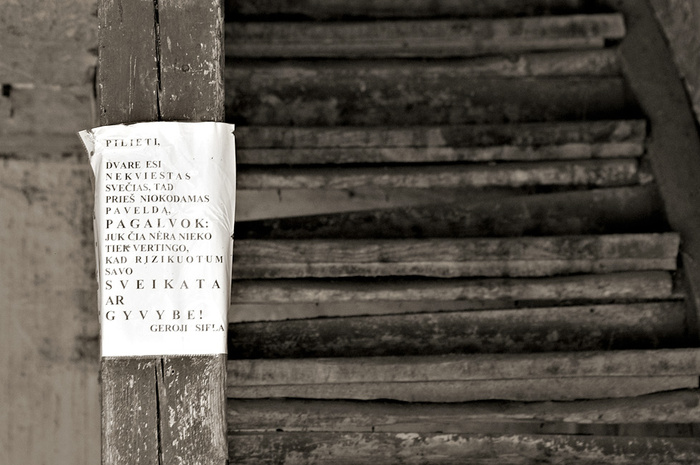 PILIETI,
DVARE ESI
NEKVIESTAS
SVEČIAS, TAD
PRIEŠ NIOKODAMAS
PAVELDĄ,
PAGALVOK:
JUK ČIA NĖRA NIEKO
TIEK VERTINGO,
KAD RIZIKUOTUM
SAVO
SVEIKATA
AR
GYVYBE!
GEROJI SIELA